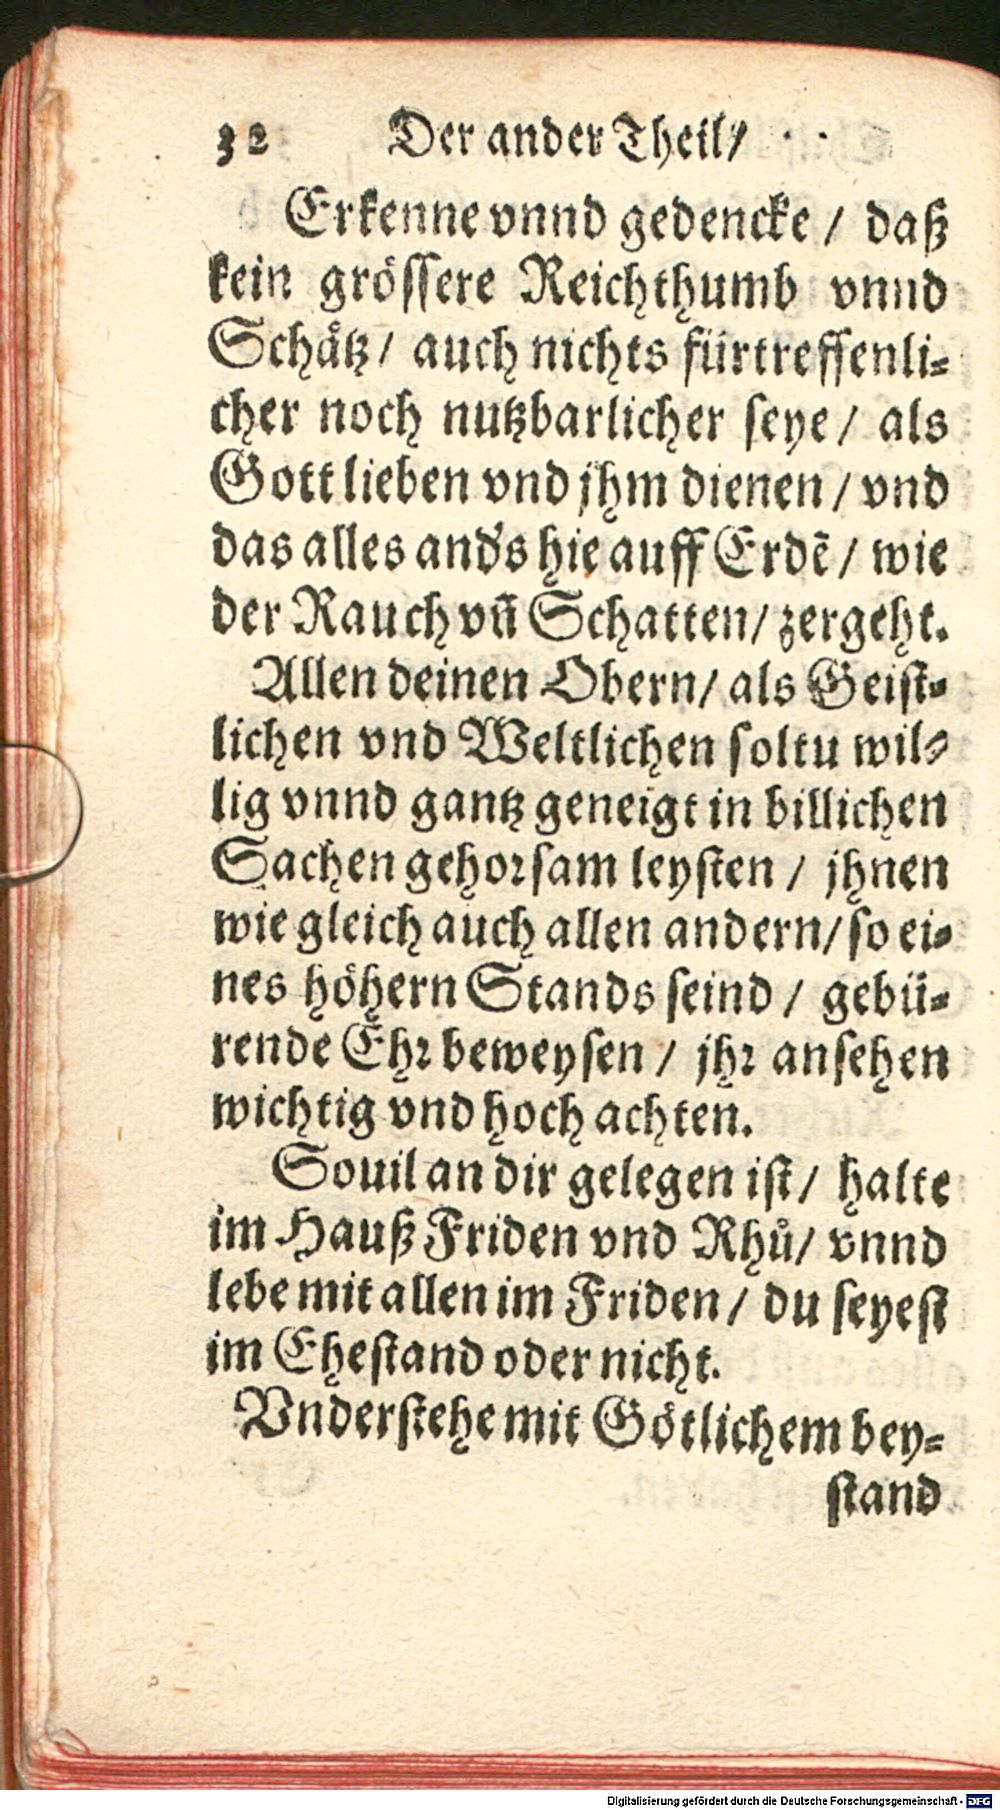 32 Der ander Theil/
Erkenne vnnd gedencke / daß
kein grössere Reichthumb vnnd
Schaͤtz / auch nichts fürtreffenli-
cher noch nutzbarlicher seye / als
Gott lieben vnd jhm dienen / vnd
das alles and's hie auff Erdẽ / wie
der Rauch vñ Schatten / zergeht.
Allen deinen Obern / als Geist-
lichen vnd Weltlichen soltu wil-
lig vnnd gantz geneigt in billichen
Sachen gehorsam leysten / jhnen
wie gleich auch allen andern / so ei-
nes hoͤhern Stands seind / gebü-
rende Ehr beweysen / jhr ansehen
wichtig vnd hoch achten.
Souil an dir gelegen ist / halte
im Hauß Friden vnd Rhuͦ / vnnd
lebe mit allen im Friden / du seyest
im Ehestand oder nicht.
Vnderstehe mit Goͤtlichem bey-
stand
Digitalisierung gefördert durch die Deutsche Forschungsgemeinschaft - DFG